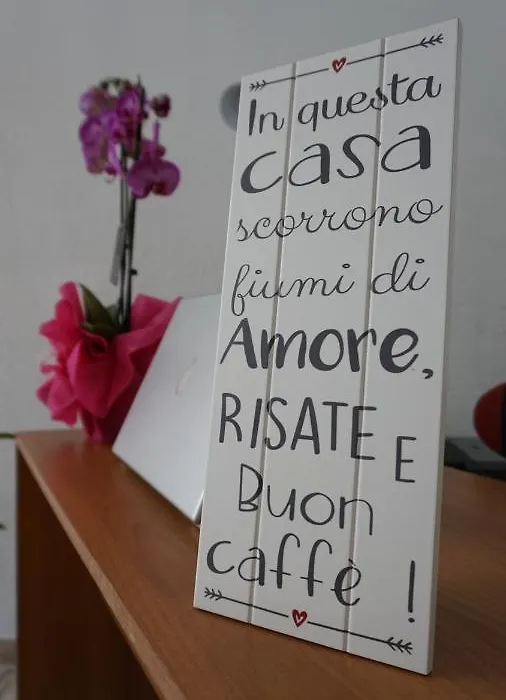 In questa
casa
scorrono
fiumi di
Amore,
RISATE E
Buon
caffè !